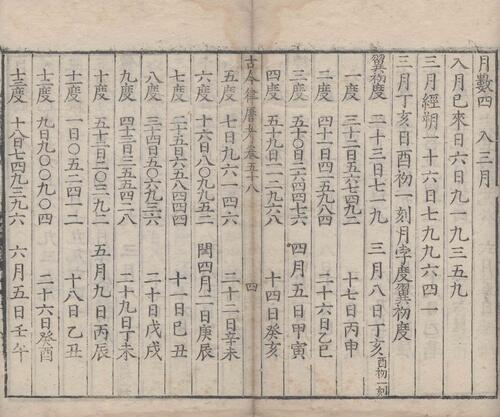 月數四 入三月
入月已來日六日九一九三五九
三月經朔一十六日七九九六四一
三月丁亥日酉初一刻月孛度翼初度
翼初度 三月八日丁亥酉初一刻
一度 三十二日五六七四九二 十七日丙申
二度 四十一日四五九八四 二十六日乙巳
三度 五十日二六四四七六 四月五日甲寅
四度 五十九日一一二九六八 十四日癸亥
古今律曆考卷五十八 四
五度 七日九六一四六 二十二日辛未
六度 一十六日八〇九九五二 閏四月一日庚辰
七度 二十五日六五八四四四 十一日己丑
八度 三十四日五〇六九三六 二十日戊戌
九度 四十三日三五五四二八 二十九日丁未
十度 五十二日二〇三九二 五月九日丙辰
十一度 一日〇五二四一二 十八日乙丑
十二度 九日九〇〇九〇四 二十六日癸酉
十三度 十八日七四九三九六 六月五日壬午